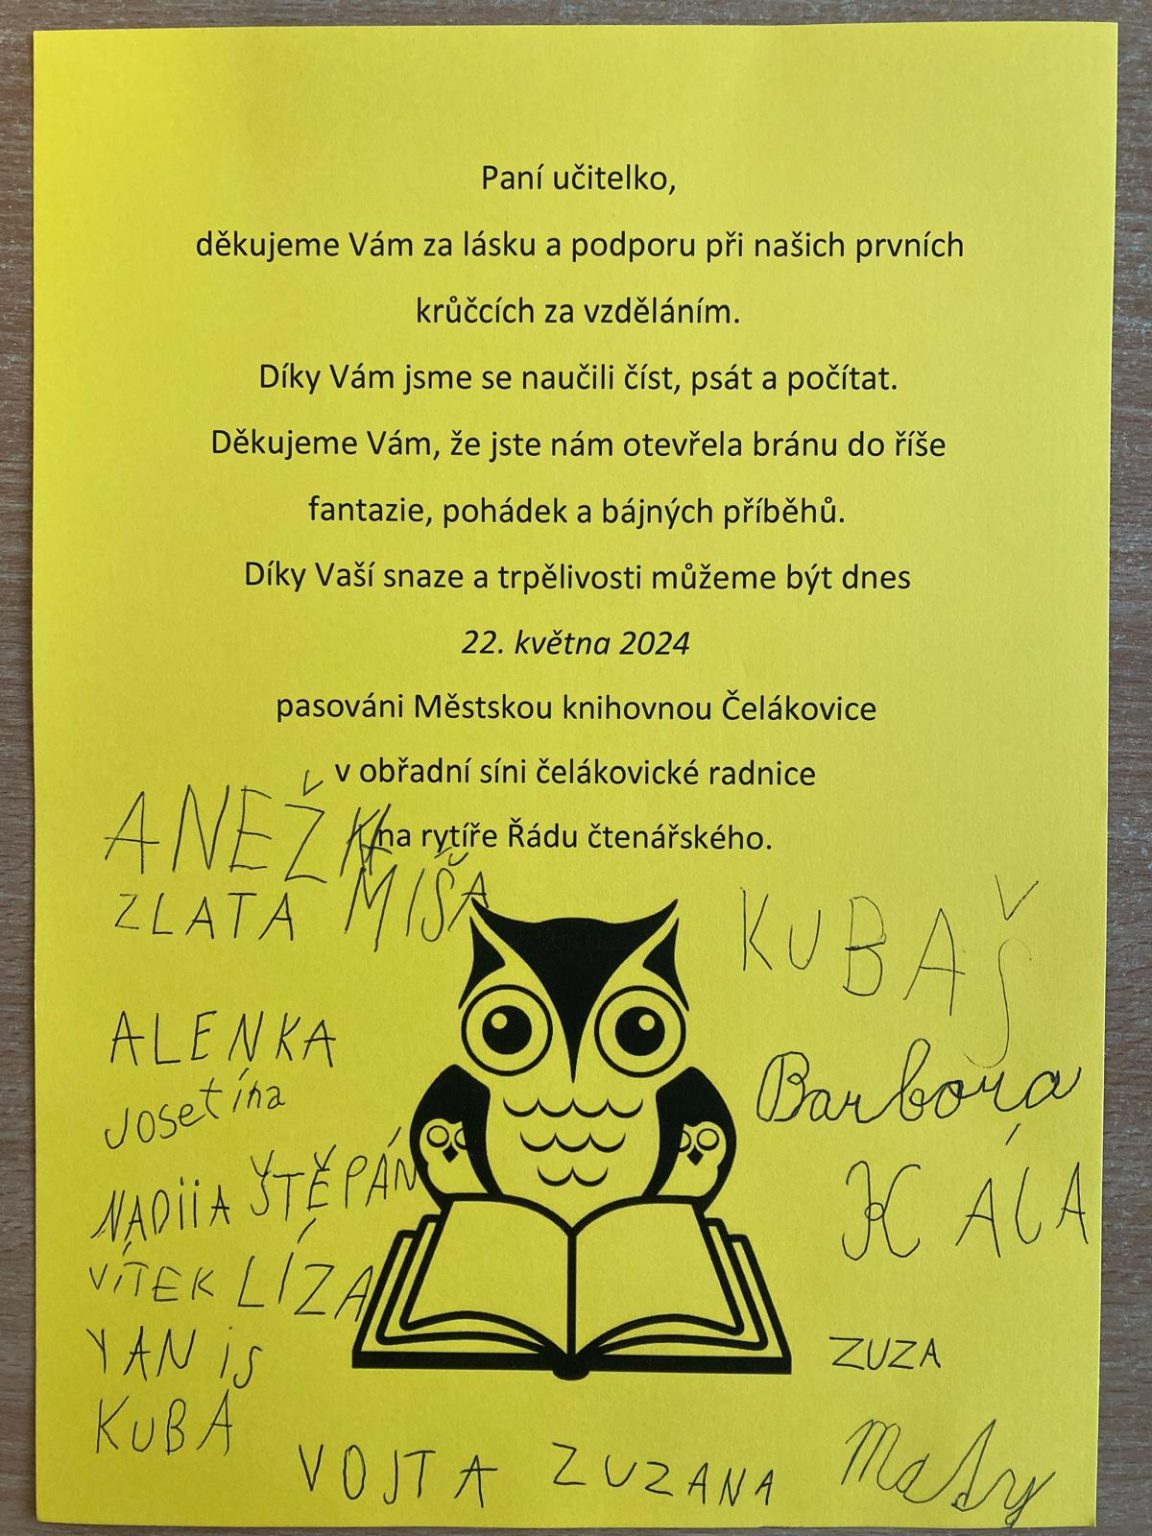 Paní učitelko,
děkujeme Vám za lásku a podporu při našich prvních
krůčcích za vzděláním.
Díky Vám jsme se naučili číst, psát a počítat.
Děkujeme Vám, že jste nám otevřela bránu do říše
fantazie, pohádek a bájných příběhů.
Díky Vaší snaze a trpělivosti můžeme být dnes
22. května 2024
pasováni Městskou knihovnou Čelákovice
v obřadní síni čelákovické radnice
na rytíře Řádu čtenářského.
ZLATA MÍŠA
KUBAŠ
ALENKA
Barbora
NADIIA ŠTĚPÁN
KÁLA
VÍTEK LÍZA
YANis
ZUZA
KUBA
VOJTA ZUZANA